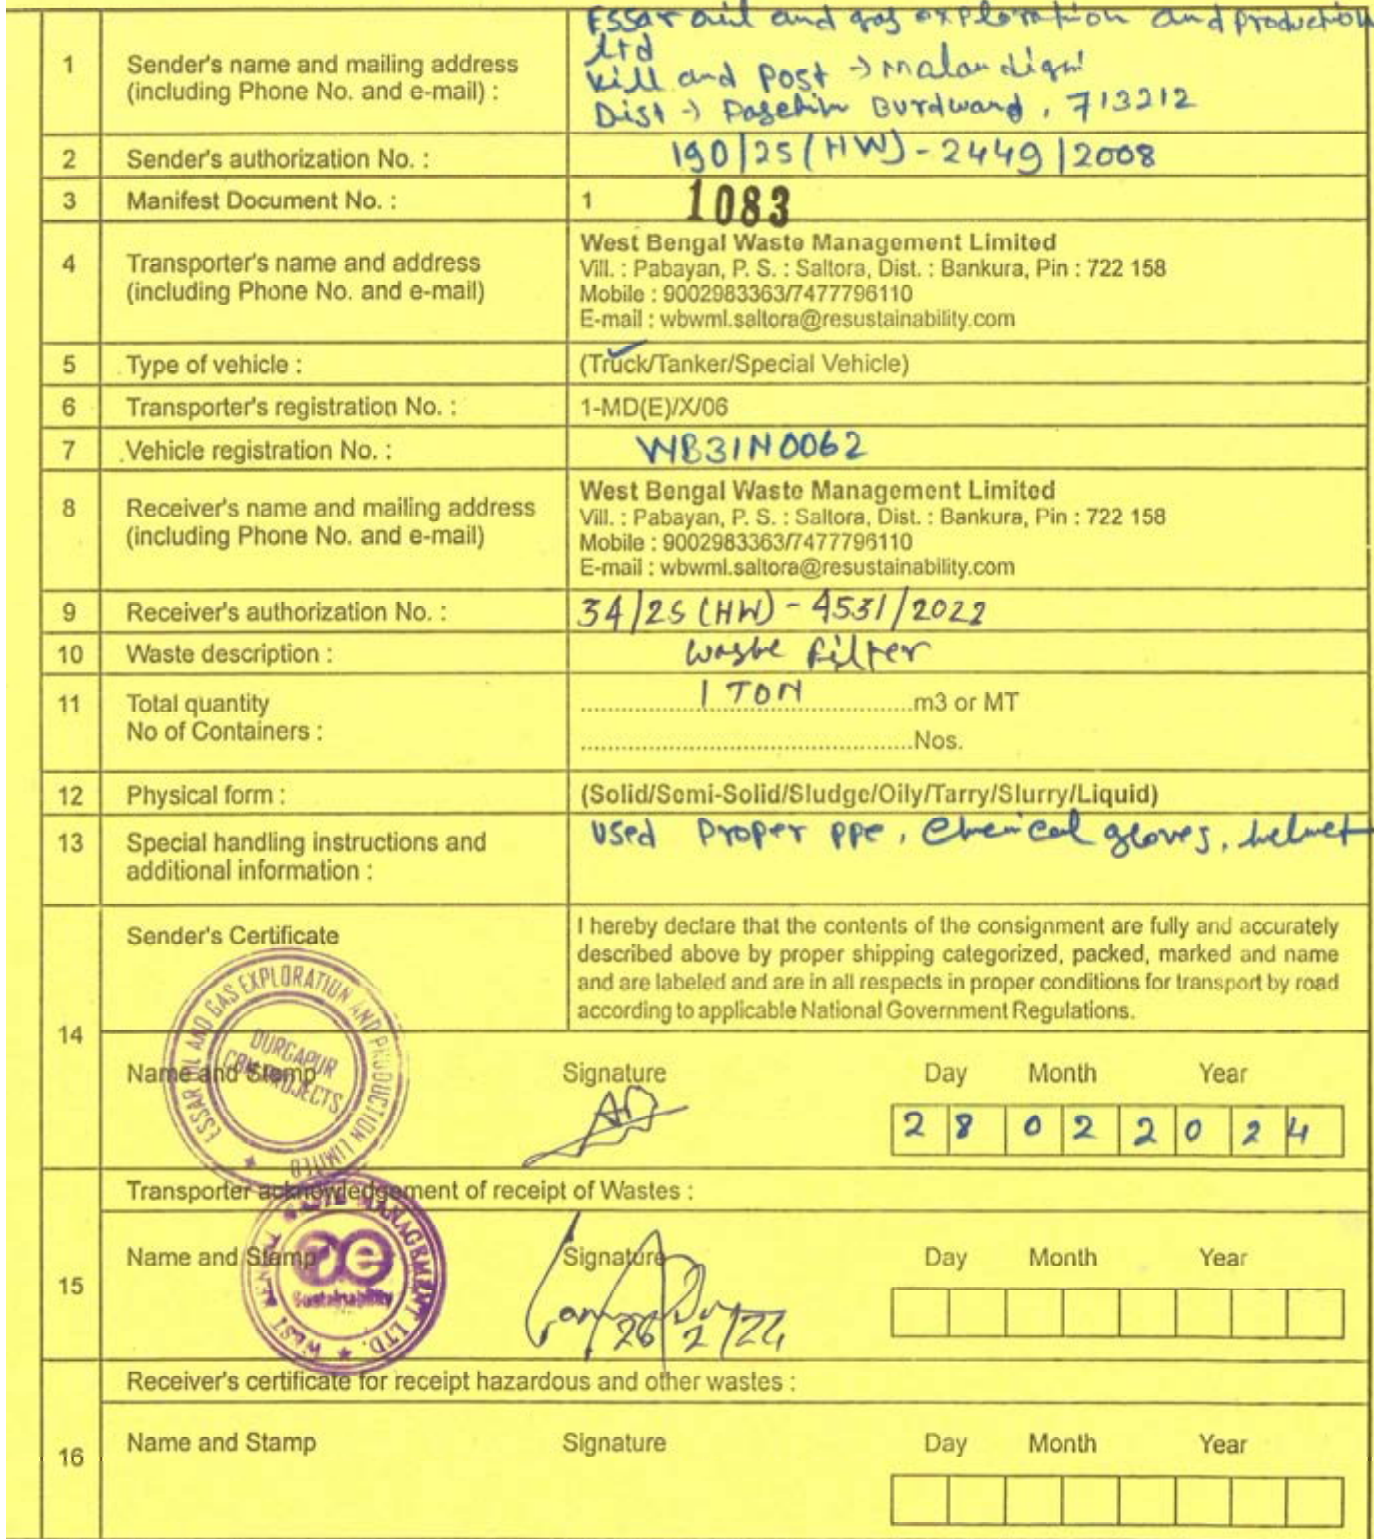 Essar oil and gas exploration and production
Ltd
1 Sender's name and mailing address
(including Phone No. and e-mail) :
Vill and Post → malandighi
Dist → Paschim Burdward, 713212
2 Sender's authorization No. : 190/2S(HW)-2449/2008
3 Manifest Document No. : 1 1083
4 Transporter's name and address
(including Phone No. and e-mail)
West Bengal Waste Management Limited
Vill. : Pabayan, P. S. : Saltora, Dist. : Bankura, Pin : 722 158
Mobile : 9002983363/7477796110
E-mail : wbwml.saltora@resustainability.com
5 Type of vehicle : (Truck/Tanker/Special Vehicle)
6 Transporter's registration No. : 1-MD(E)/X/06
7 Vehicle registration No. : WB31N0062
8 Receiver's name and mailing address
(including Phone No. and e-mail)
West Bengal Waste Management Limited
Vill. : Pabayan, P. S. : Saltora, Dist. : Bankura, Pin : 722 158
Mobile : 9002983363/7477796110
E-mail : wbwml.saltora@resustainability.com
9 Receiver's authorization No. : 34/2S(HW)-4531/2022
10 Waste description : Waste Filter
11 Total quantity
No of Containers :
1 TON m3 or MT
Nos.
12 Physical form : (Solid/Semi-Solid/Sludge/Oily/Tarry/Slurry/Liquid)
13 Special handling instructions and
additional information :
Used Proper ppe, Chemical gloves, helmet
14 Sender's Certificate
I hereby declare that the contents of the consignment are fully and accurately
described above by proper shipping categorized, packed, marked and name
and are labeled and are in all respects in proper conditions for transport by road
according to applicable National Government Regulations.
ESSAR OIL AND GAS EXPLORATION AND PRODUCTION LIMITED
DURGAPUR
CBM PROJECTS
Name and Stamp Signature Day Month Year
28 02 2024
15 Transporter acknowledgement of receipt of Wastes :
WEST BENGAL WASTE MANAGEMENT LTD.
Sustainability
Name and Stamp Signature Day Month Year
28/2/24
16 Receiver's certificate for receipt hazardous and other wastes :
Name and Stamp Signature Day Month Year